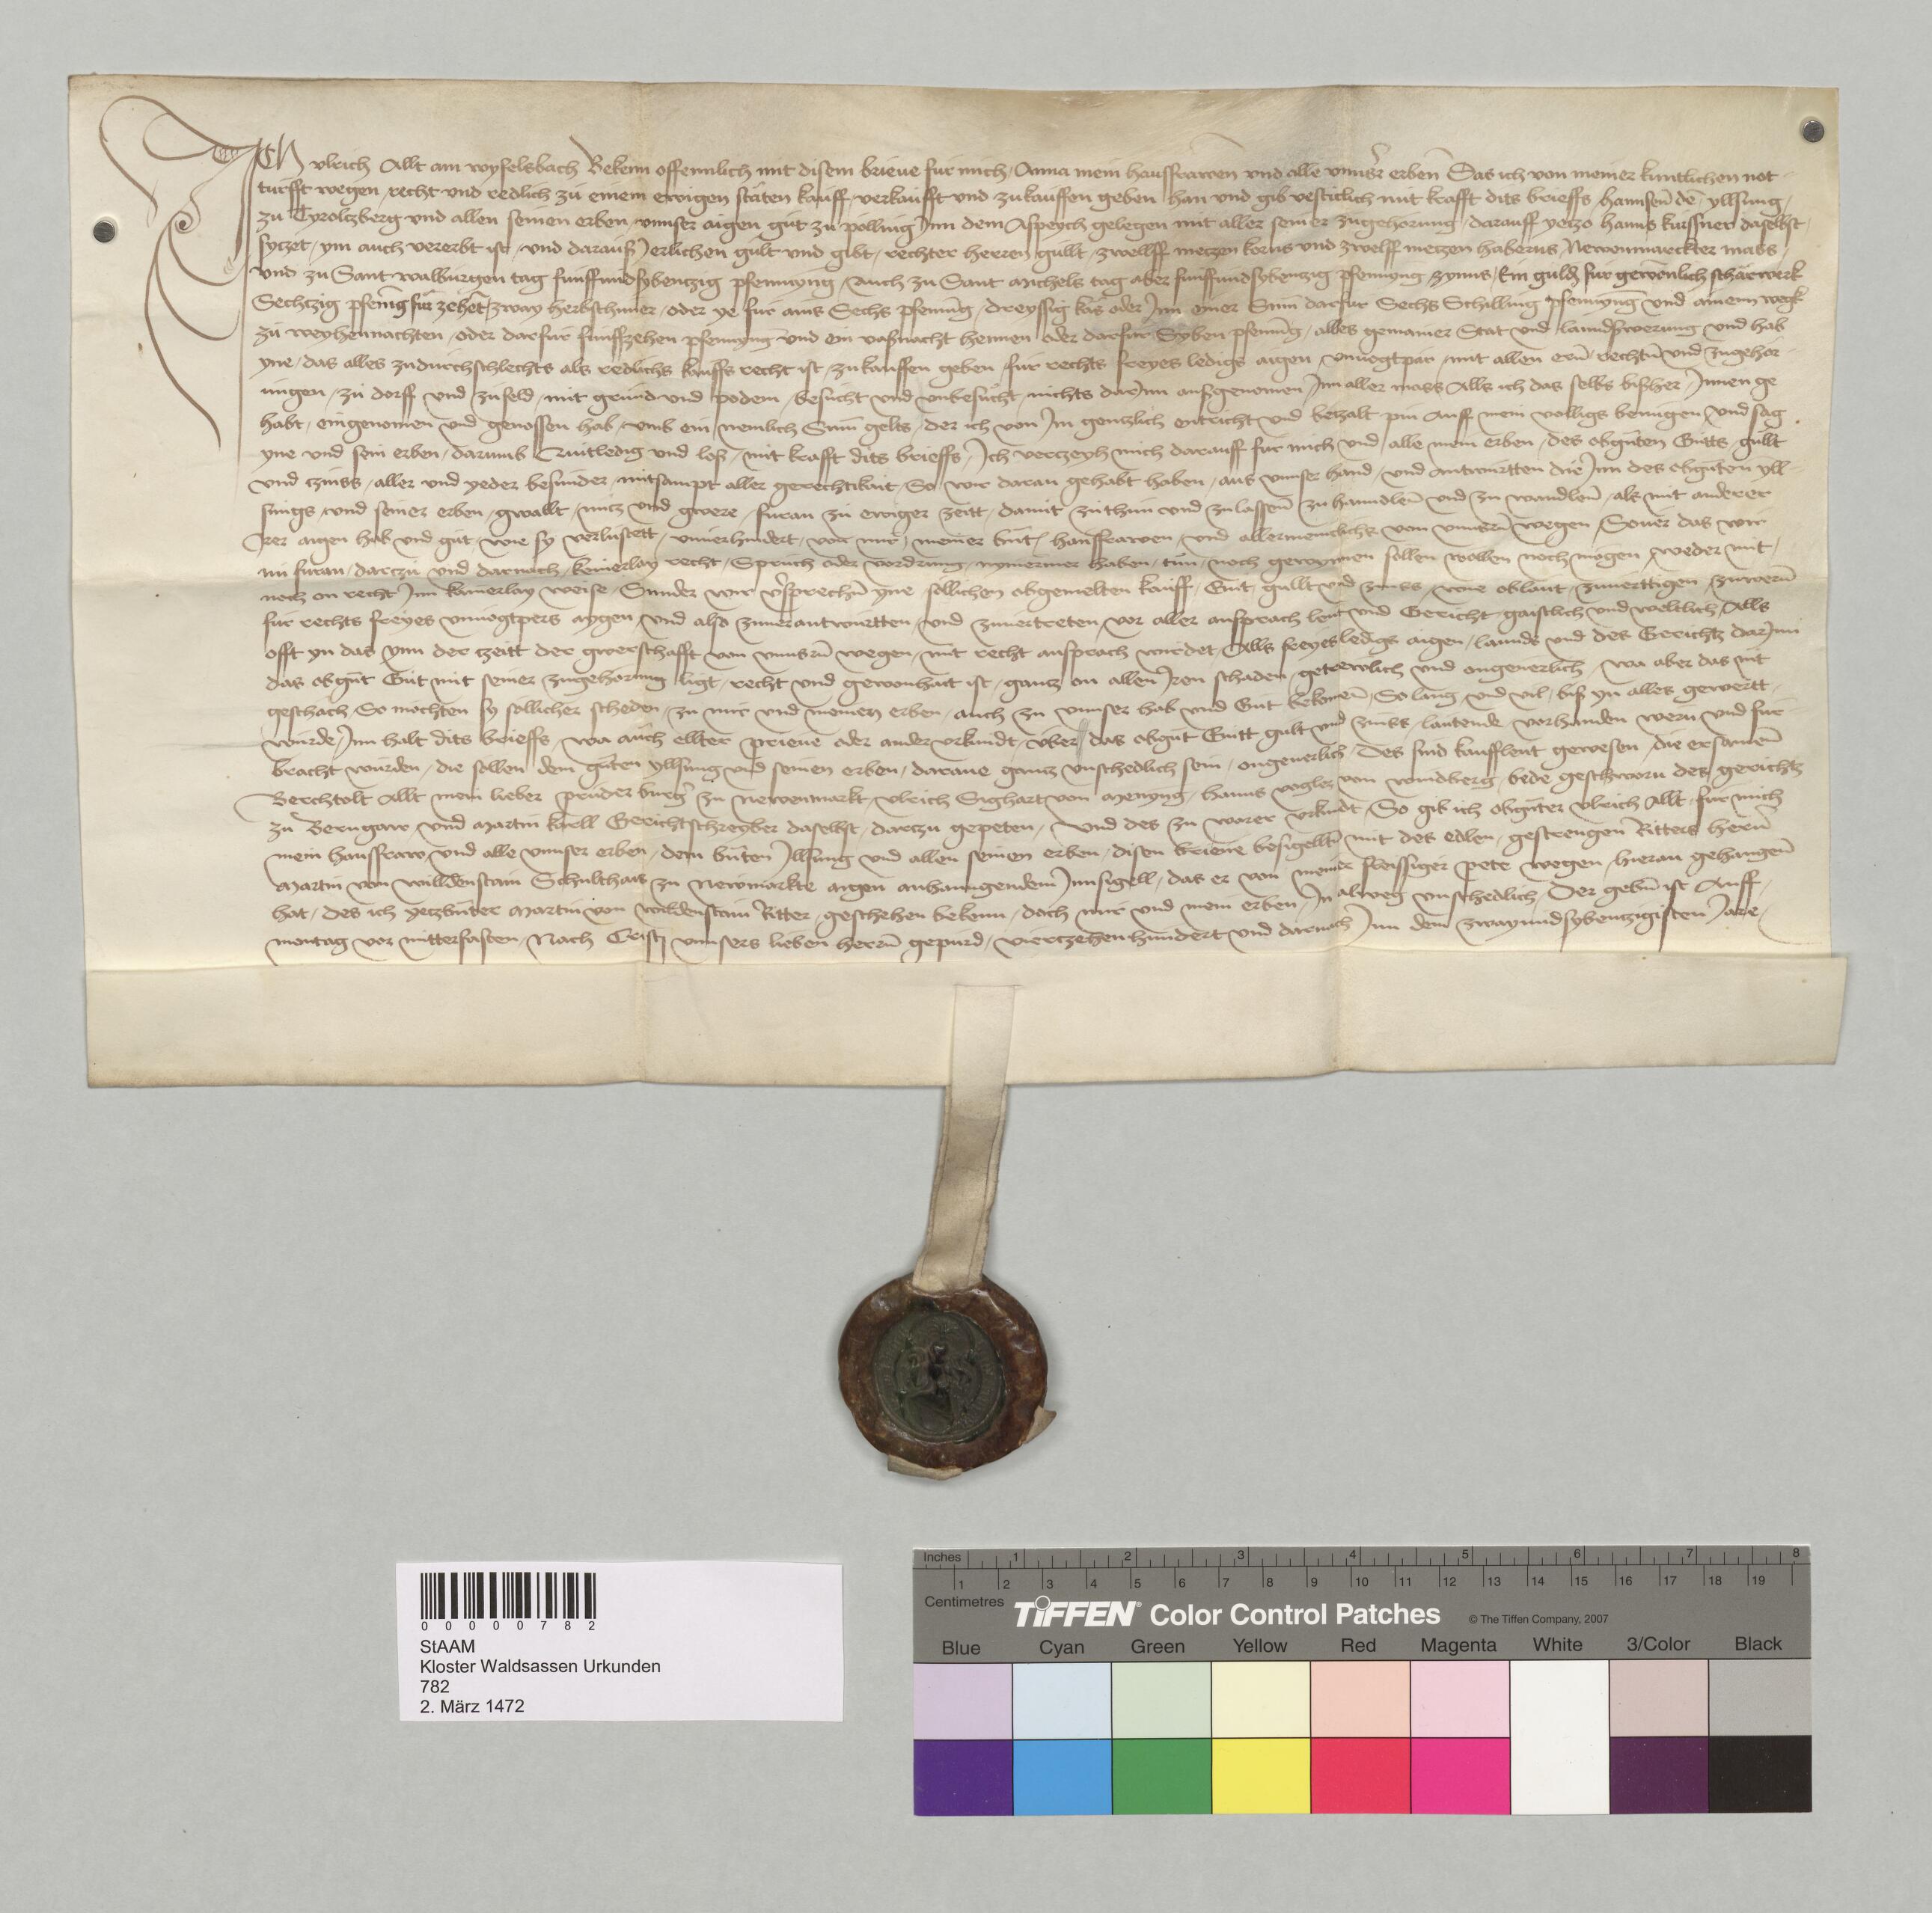 ICh vlrich Allt am wyfelsbach Bekenn offennlich mit disem brieue fur mich Anna mein haussfrawen vnd alle vnnsr erben Das ich von meiner kuntlichen not
turfft wegen recht vnd redlich zu einem ewigen stäten kauff verkaufft vnd zukauffen geben han vnd gib vesticlich mit krafft dits brieffs hannsen de yllsung
zu Tyroltzberg vnd allen seinen erben vnnser aigen gut zu polling Inn dem Aspeych gelegen mit aller seiner zugehorung darauff yetzo hanns kurssner daselbst
syczet ym auch vererbt ist vnd darauss Ierlichen gult vnd gibt rechter herren gullt zwellff metzen korns vnd zwelff metzen haberns Newenmarckter mass
vnd zu Sant walburgen tag funffundsybentzig pfennyng Auch zu Sant michels tag aber funffundsybenzig pfennyng zynns Ein guld fur gewonlich scharwerk
Sechtzig pfening fur zehet zway herbsthuner oder ye fur ains Sechs pfening dreyssig käs oder Inn einer Sum darfur Sechs Schilling pfennyng vnd ainem wegk
zu weyhennachten oder darfur funffzehen pfennyng vnd ein vasnacht hennen oder darfur Syben pfening alles gemainer Stat vnd lanndswerung vnd hab
yne das alles zudurchschlechts als redlichs kauffs recht ist zukauffen geben fur rechts freyes ledigs aigen vnuogtpar mit allen ern rechtn vnd zugehor
ungen zu dorff vnd zufeld mit grund vnd podem besucht vnd vnbesucht nichts darInn aussgenomen Inn aller mass Alls ich das selbs bissher Innen ge
habt eingenomen vnd genossen hab vmb ein nemlich Sum gelts der ich von Im gentzlich entricht vnd betzalt pin Auff mein volligs benugen vnd sag
yne vnd sein erben darumb Quitledig vnd loss mit krafft dits brieffs Ich verczeyh mich darauff fur mich vnd alle mein erben des obguten Gutts gullt
vnd czinss aller vnd yeder besunder mitsampt aller gerechtikait So wir daran gehabt haben aus vnnser hand vnd antwurtten die Inn des obguten yll
sungs vnd seiner erben gwallt nutz vnd gwere furan zu ewiger zeitt damit zuthun vnd zulassen zu hanndlen vnd zu wandlen als mit anderer
Irer aigen hab vnd gut wie sy verlustett vnuerhindert von mir meiner haussfrawen vnd allermenicklichs von vnnsrn wegen Souer das wir
nu furan darczu vnd darnach keinerlay recht Spruch oder vordrung nymermer haben tun noch gewynnen sollen wollen noch mogen weder mit
noch on recht Inn kainerlay weise Sunder wir versprechn yne sollichen obgemelten kauff Gut gullt vnd zinss wie oblaut zuuerttigen zuwern
fur rechts freyes vnuogtpers aygen vnd also zuuerantwurtten vnd zuuertreten vor aller ansprach leut vnd Gericht gaistlich vnd weltlich Alls
offt yn das ynn der zeitt der gwerschafft von vnnsrn wegen mit recht ansprach wirdet Alls freyes ledigs aigen lannds vnd des Gerichtz darInn
das obgut Gut mit seiner zugehorung ligt recht vnd gewonhait ist gantz on allen Iren schaden getrewlich vnd ongeuerlich wa aber das nit
geschach So mochten sy sollicher scheden zu mir vnd meinen erben auch zu vnnser hab vnd Gut bekomen So lang vnd vil biss yn alles gewertt
wurde Inn halt dits brieffs wa auch ellter prieue oder ander vrkundt vber das obgut Gutt gult vnd zinss lautende vorhannden wern vnd fur
bracht wurden die sollen dem guten yllsung vnd seinen erben daraue gantz vnschedlich sein ongeuerlich Des sind kauffleut gewesen die ersamen
Berchtolt Allt mein lieber pruder burg zu Newenmarkt vlrich Sighart von Menyng hanns vogler von windberg bede geschworn des gerichtz
zu Berngaw vnd Martin kroll Gerichtschreyber daselbst darczu gepeten Vnd des zu warer vrkundt So gib ich obguter vlrich Allt fur mich
mein haussfraw vnd alle vnnser erben dem guten Illsung vnd allen seinen erben disen brieue besigellt mit des edlen gestrengen Ritters hern
Martin von willdenstain Schulthais zu Newmarkte aigen anhanngendem Innsigell das er von meiner fleissiger pete wegen hieran gehangen
hat des ich yetzguter Martin von wildenstain Ritter geschehen bekenn doch mir vnd mein erben In alweg vnschedlich Der gebn ist Auff
montag vor mitterfasten Nach Cristj vnnsers lieben herrn gepurd vierczehenhundert vnd darnach Inn dem zwayundsybentzigisten Jare
0 0 0 0 0 7 8 2
StAAM
Kloster Waldsassen Urkunden
782
2. März 1472
Inches 1 2 3 4 5 6 7 8
1 2 3 4 5 6 7 8 9 10 11 12 13 14 15 16 17 18 19
Centimetres
TIFFEN® Color Control Patches © The Tiffen Company, 2007
Blue Cyan Green Yellow Red Magenta White 3/Color Black